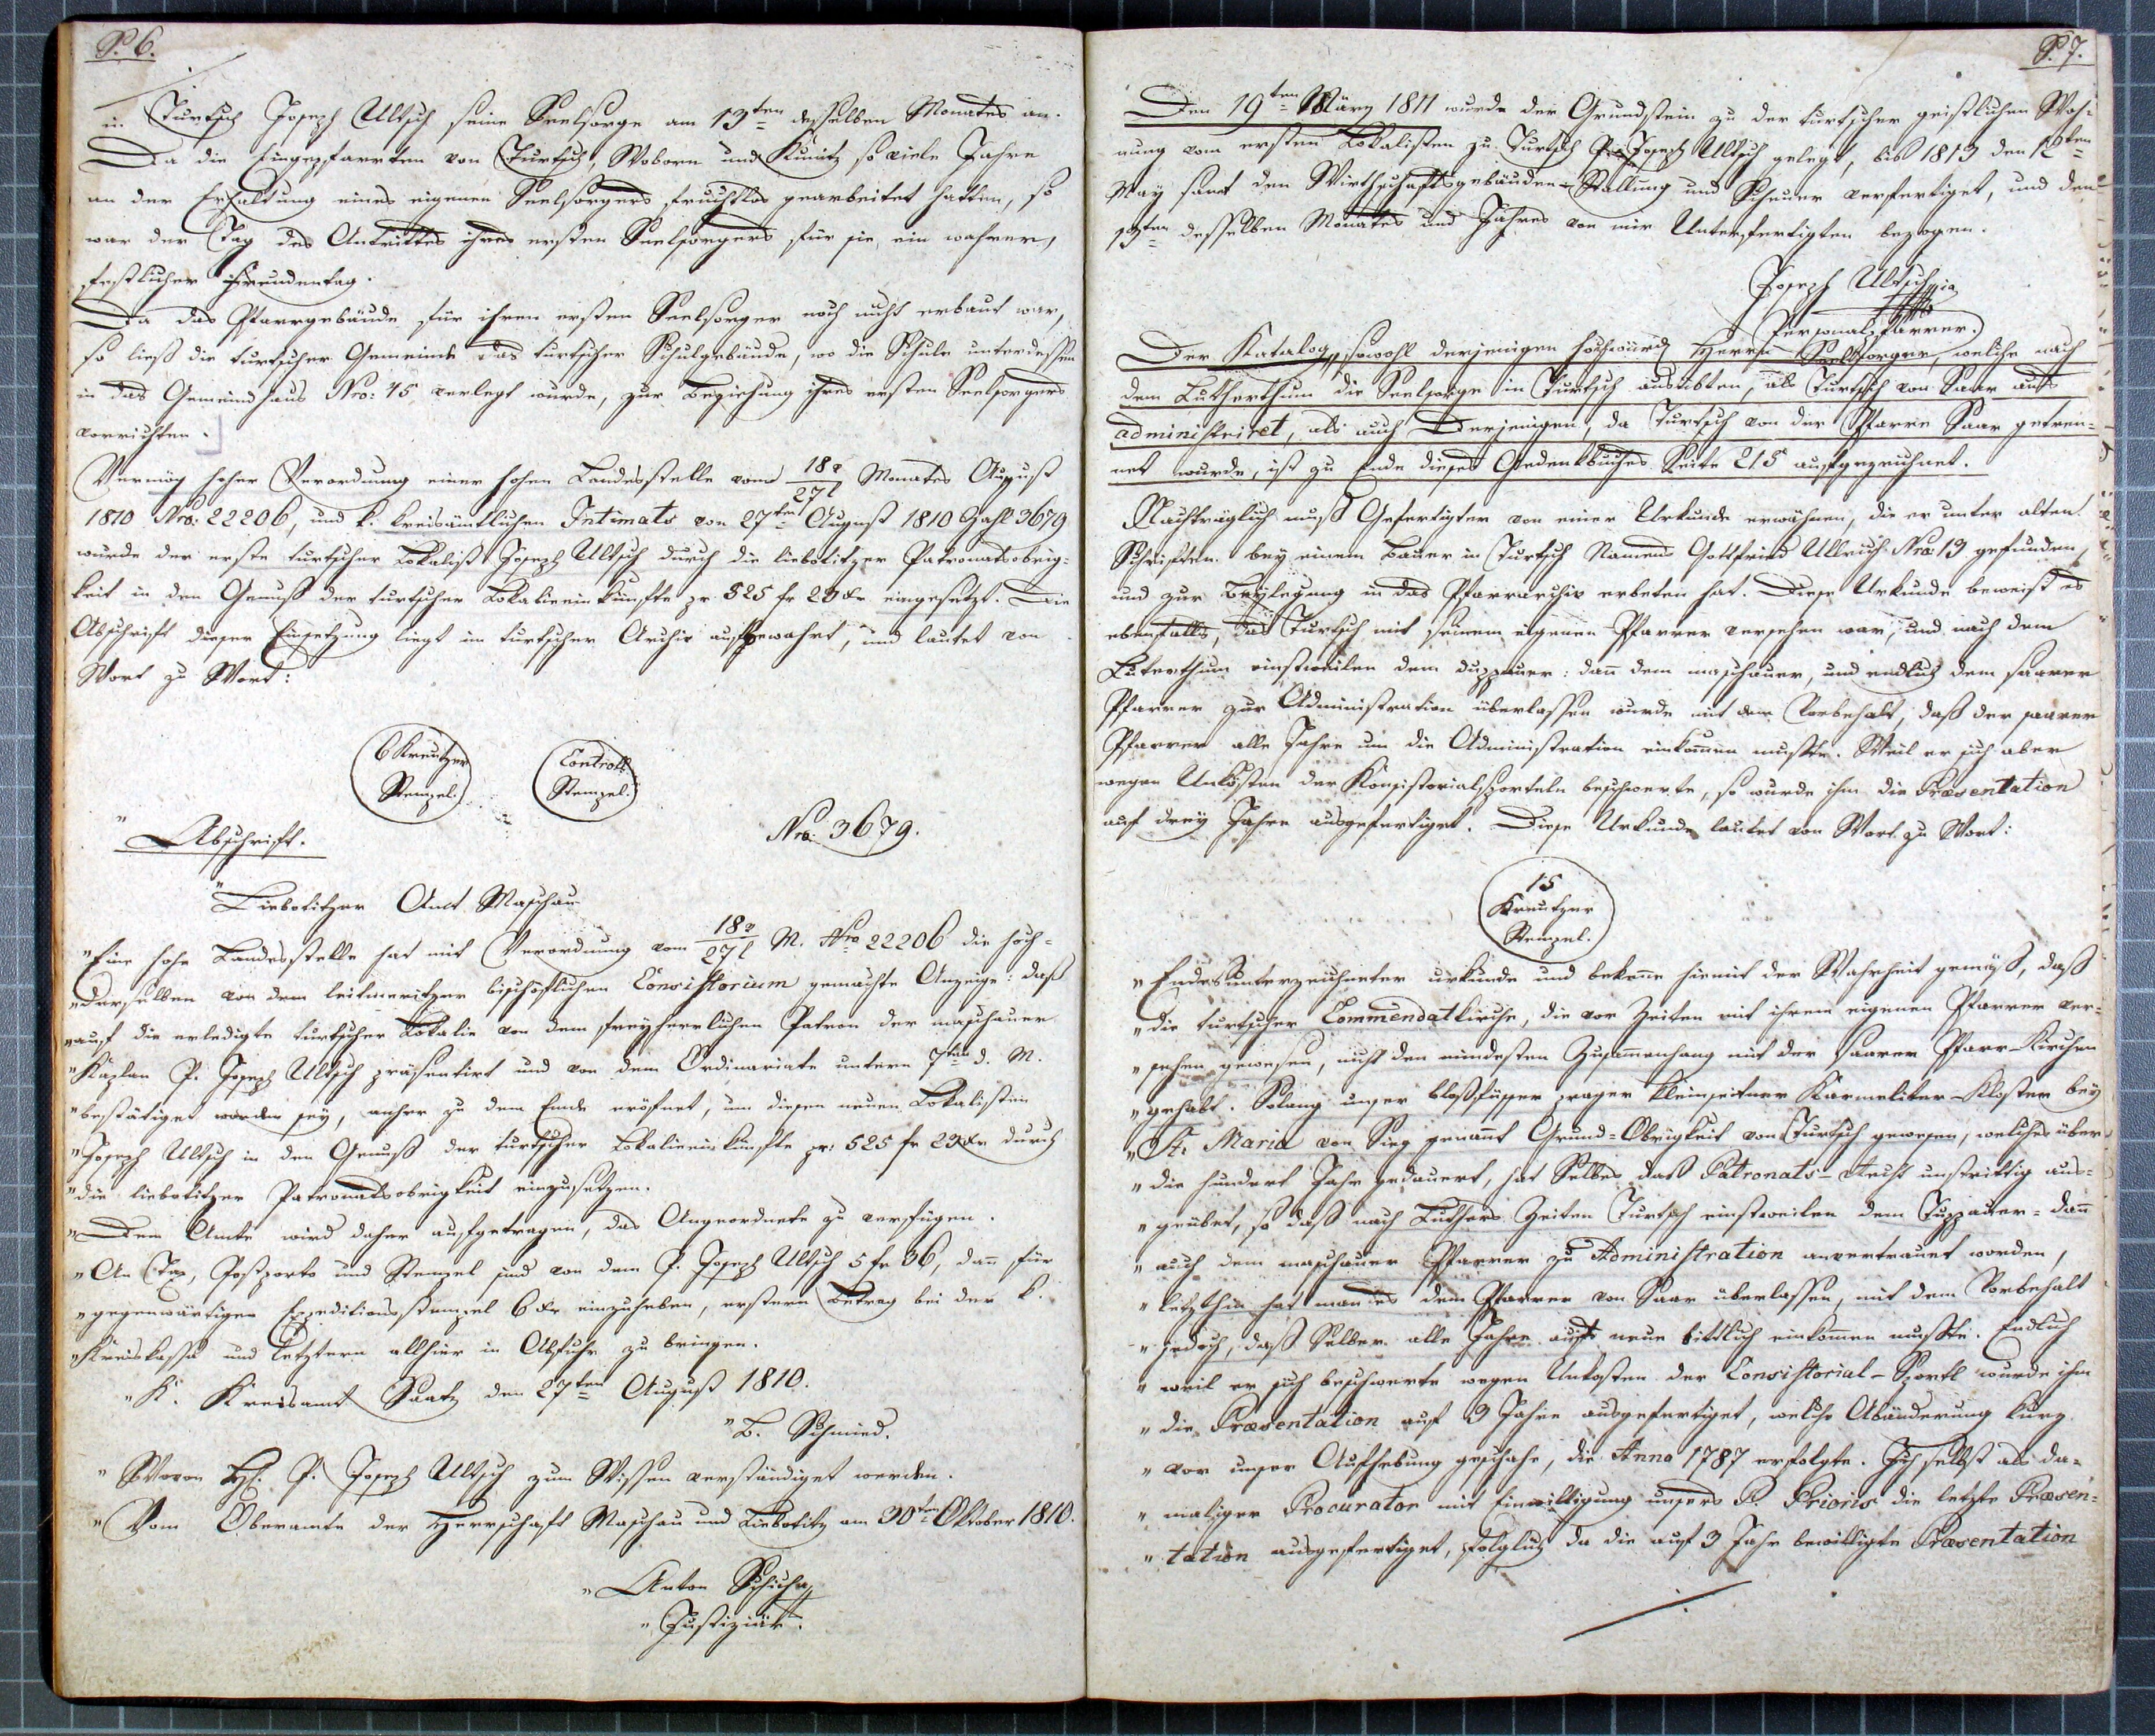 P. 6.
in Turtsch Joseph Ultsch seine Seelsorge am 13ten desselben Monates an.
Da die Eingepfarrten von Turtsch, Woborn und Kunitz so viele Jahre
an der Erhaltung eines eigenen Seelsorgers fruchtlos gearbeitet hatten, so
war der Tag des Antrittes ihres ersten Seelsorgers für sie ein wahrer,
festlicher Freudentag.
Da das Pfarrgebäude für ihren ersten Seelsorger noch nicht erbaut war,
so ließ die turtscher Gemeinde das turtscher Schulgebäude, wo die Schule unterdessen
in das Gemeindhaus Nro: 45 verlegt wurde, zur Beziehung ihres ersten Seelsorgers
vorrichten.
Vermög hoher Verordnung einer hohen Landesstelle vom 18/27 Monates August
1810 Nro: 22206, und k. kreisämtlichen Intimats von 27ten August 1810 Zahl 3679
wurde der erste turtscher Lokalist Joseph Ultsch durch die liebotitzer Patronatsobrig-
keit in den Genuß der turtscher Lokalieeinkünfte pr. 525 fr 23 xr. eingesetzt. Die
Abschrift dieser Einsetzung liegt im turtscher Archiv aufbewahrt, und lautet von
Wort zu Wort:
6 Kreutzer
Stempel.
Controll
Stempel.
"Abschrift.
Nro: 3679.
"Liebotitzer Amt Maschau
"Eine hohe Landesstelle hat mit Verordnung vom 18/27 M. Nro 22206 die hoch-
"derselben von dem leitmeritzer bischöflichen Consistorium gemachte Anzeige: daß
"auf die erledigte turtscher Lokalie von dem freyherrlichen Patron der maschauer
"Kaplan P. Joseph Ultsch präsentirt und von dem Ordinariate untern 7ten d. M.
"bestätiget worden sey, anher zu dem Ende eröfnet, um diesen neuen Lokalisten
"Joseph Ultsch in den Genuß der turtscher Lokalieeinkünfte pr: 525 fr 23 xr durch
"die liebotitzer Patronatsobrigkeit einzusetzen.
"Dem Amte wird daher aufgetragen, das Angeordnete zu verfügen.
"An Tax, Postporto und Stempel sind von dem P. Joseph Ultsch 5 fr 36, dann für
"gegenwärtigen Expeditionsstempel 6 xr einzuheben, erstern Betrag bei der k.
"Kreiskasse und letztern allhier in Abfuhr zu bringen.
"K. Kreisamt Saatz den 27ten August 1810.
"B. Schmied.
"Wovon H. P. Joseph Ultsch zum Wissen verständiget werden.
"Vom Oberamte der Herrschaft Maschau und Liebotitz am 30ten Oktober 1810.
"Anton Schicha
"Justiziär.
P. 7.
Den 19ten März 1811 wurde der Grundstein zu der turtscher geistlichen Woh-
nung vom ersten Lokalisten zu Turtsch P. Joseph Ultsch gelegt, bis 1813 den 12ten
May samt den Wirthschaftsgebäuden Stallung und Scheuer verfertiget, und den
13ten desselben Monates und Jahres von mir Unterfertigten bezogen.
Joseph Ultsch
Personalpfarrer.
Der Katalog, sowohl derjenigen hochwürd Herrn Seelsorger, welche nach
dem Lutherthum die Seelsorge in Turtsch ausübten, als Turtsch von Saar aus
administriret, als auch Derjenigen, da Turtsch von der Pfarre Saar getren-
net wurde, ist zu Ende dieses Gedenkbuches Seite 215 aufgezeichnet.
Nachträglich muß Gefertigter von einer Urkunde erwähnen, die er unter alten
Schriften bey einem Bauer in Turtsch Namens Gottfried Ullrich Nro: 13 gefunden,
und zur Beylegung in das Pfarrarchiv erbeten hat. Diese Urkunde beweist es
ebenfalls, daß Turtsch mit seinem eigenen Pfarrer versehen war, und nach dem
Luterthum einstweilen dem duppauer: dann dem maschauer, und endlich dem saarer
Pfarrer zur Administration überlassen wurde mit dem Vorbehalt, daß der saarer
Pfarrer alle Jahre um die Administration einkommen mußte. Weil er sich aber
wegen Unkösten der Konsistorialsporteln beschwerte, so wurde ihm die Præsentation
auf drey Jahre ausgefertiget. Diese Urkunde lautet von Wort zu Wort:
15
Kreutzer
Stempel.
"Endesunterzeichneter urkunde und bekenne hiemit der Wahrheit gemäß, daß
"die turtscher Commendatkirche, die vor Zeiten mit ihrem eigenen Pfarrer ver-
"sehen gewesen, nicht den mindesten Zusammenhang mit der saarer Pfarr-Kirchen
"gehabt. Solang unser bloßfüsser prager kleinseitner Karmeliter-Kloster bey
"St. Maria von Sieg genannt Grund-Obrigkeit von Turtsch gewesen, welches über
"die hundert Jahr gedauert, hat Selbes daß Patronats-Recht unstrittig aus-
"geübet, so daß nach Luthers Zeiten Turtsch einstweilen dem Tuppauer- dann
"auch dem maschauer Pfarrer zu Administration anvertrauet worden,
"letzthin hat man es dem Pfarrer von Saar überlassen, mit dem Vorbehalt
"jedoch, daß Selber alle Jahre aufs neue bittlich einkommen mußte. Endlich
"weil er sich beschwerte wegen Unkosten der Consistorial-Sportl wurde ihm
"die Præsentation auf 3 Jahre ausgefertiget, welche Abänderung kurz
"vor unser Aufhebung geschahe, die Anno 1787 erfolgte. Ich selbst als da-
"maliger Procurator mit Einwilligung unsers P. Prioris die letzte Præsen-
"tation ausgefertiget, folglich da die auf 3 Jahr bewilligte Præsentation